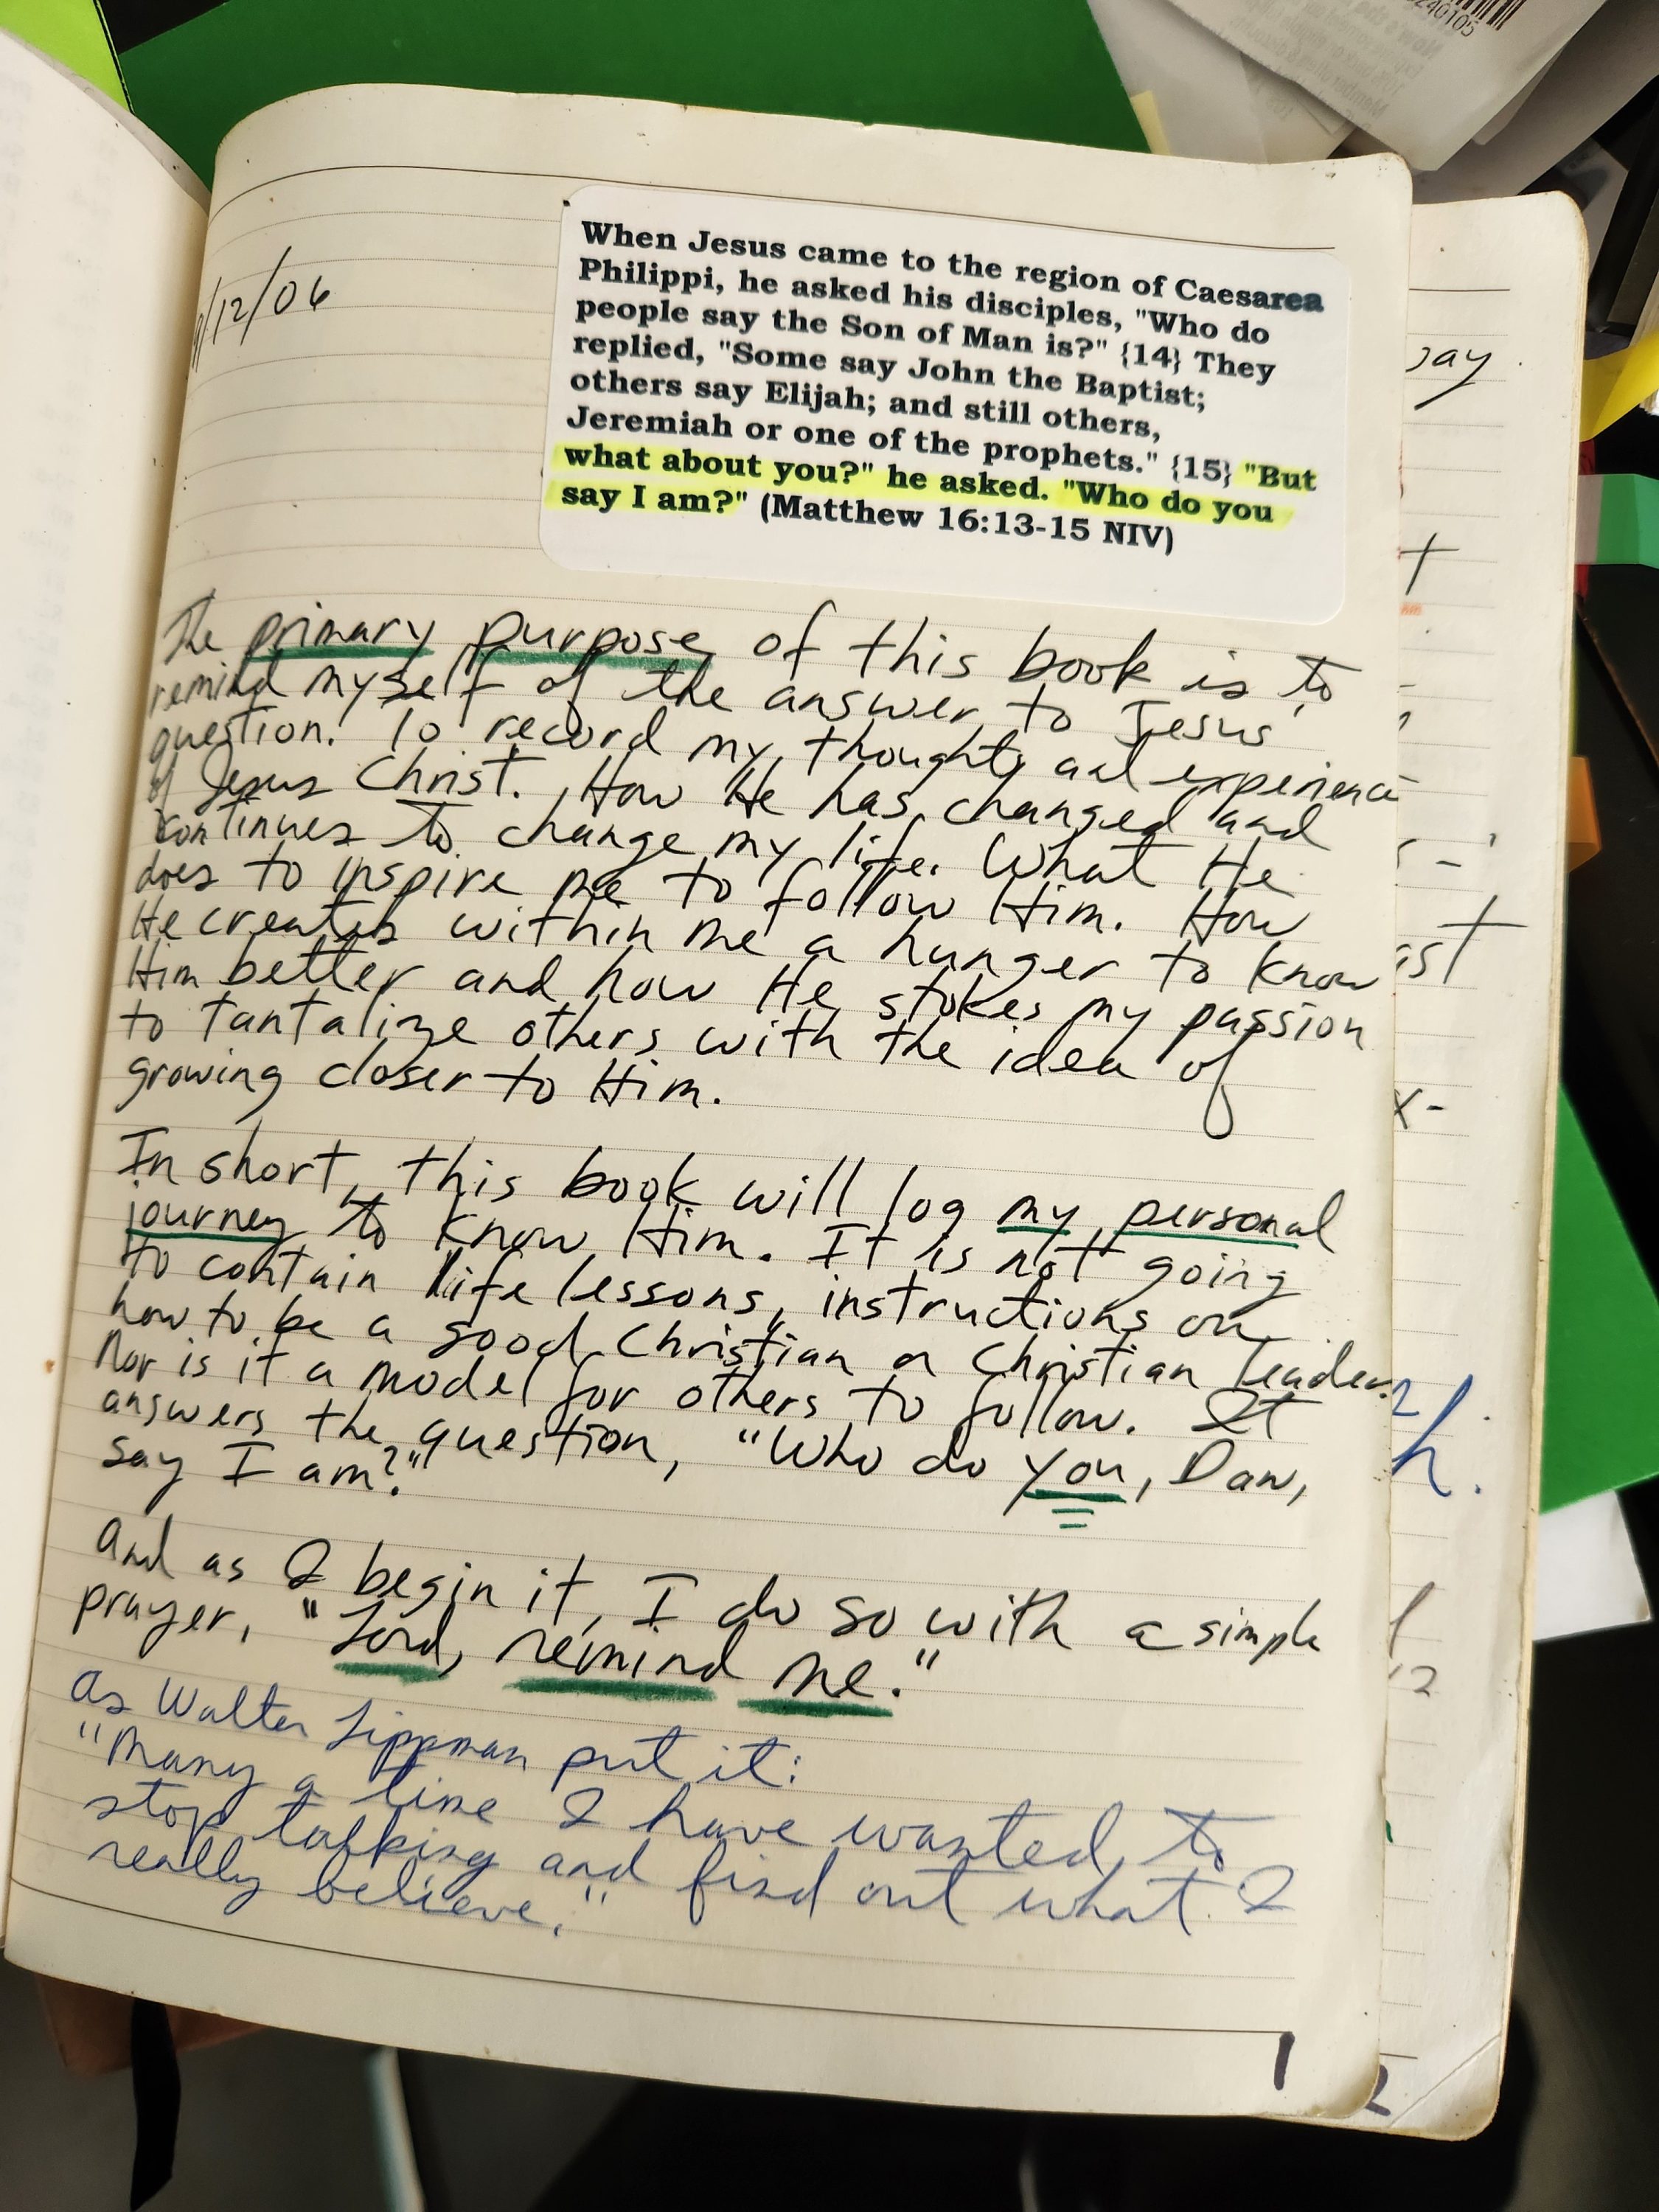 /12/06
When Jesus came to the region of Caesarea
Philippi, he asked his disciples, "Who do
people say the Son of Man is?" {14} They
replied, "Some say John the Baptist;
others say Elijah; and still others,
Jeremiah or one of the prophets." {15} "But
what about you?" he asked. "Who do you
say I am?" (Matthew 16:13-15 NIV)
The primary purpose of this book is to
remind myself of the answer to Jesus'
question. To record my thoughts and experience
of Jesus Christ. How He has changed and
continues to change my life. What He
does to inspire me to follow Him. How
He creates within me a hunger to know
Him better and how He stokes my passion
to tantalize others with the idea of
growing closer to Him.
In short, this book will log my personal
journey to know Him. It is not going
to contain life lessons, instructions on
how to be a good Christian or Christian leader.
Nor is it a model for others to follow. It
answers the question, "Who do you, Dan,
say I am?"
And as I begin it, I do so with a simple
prayer, "Lord, remind me."
As Walter Lippman put it:
"Many a time I have wanted to
stop talking and find out what I
really believe."
1
say.
ist
x-
h.
2
240105